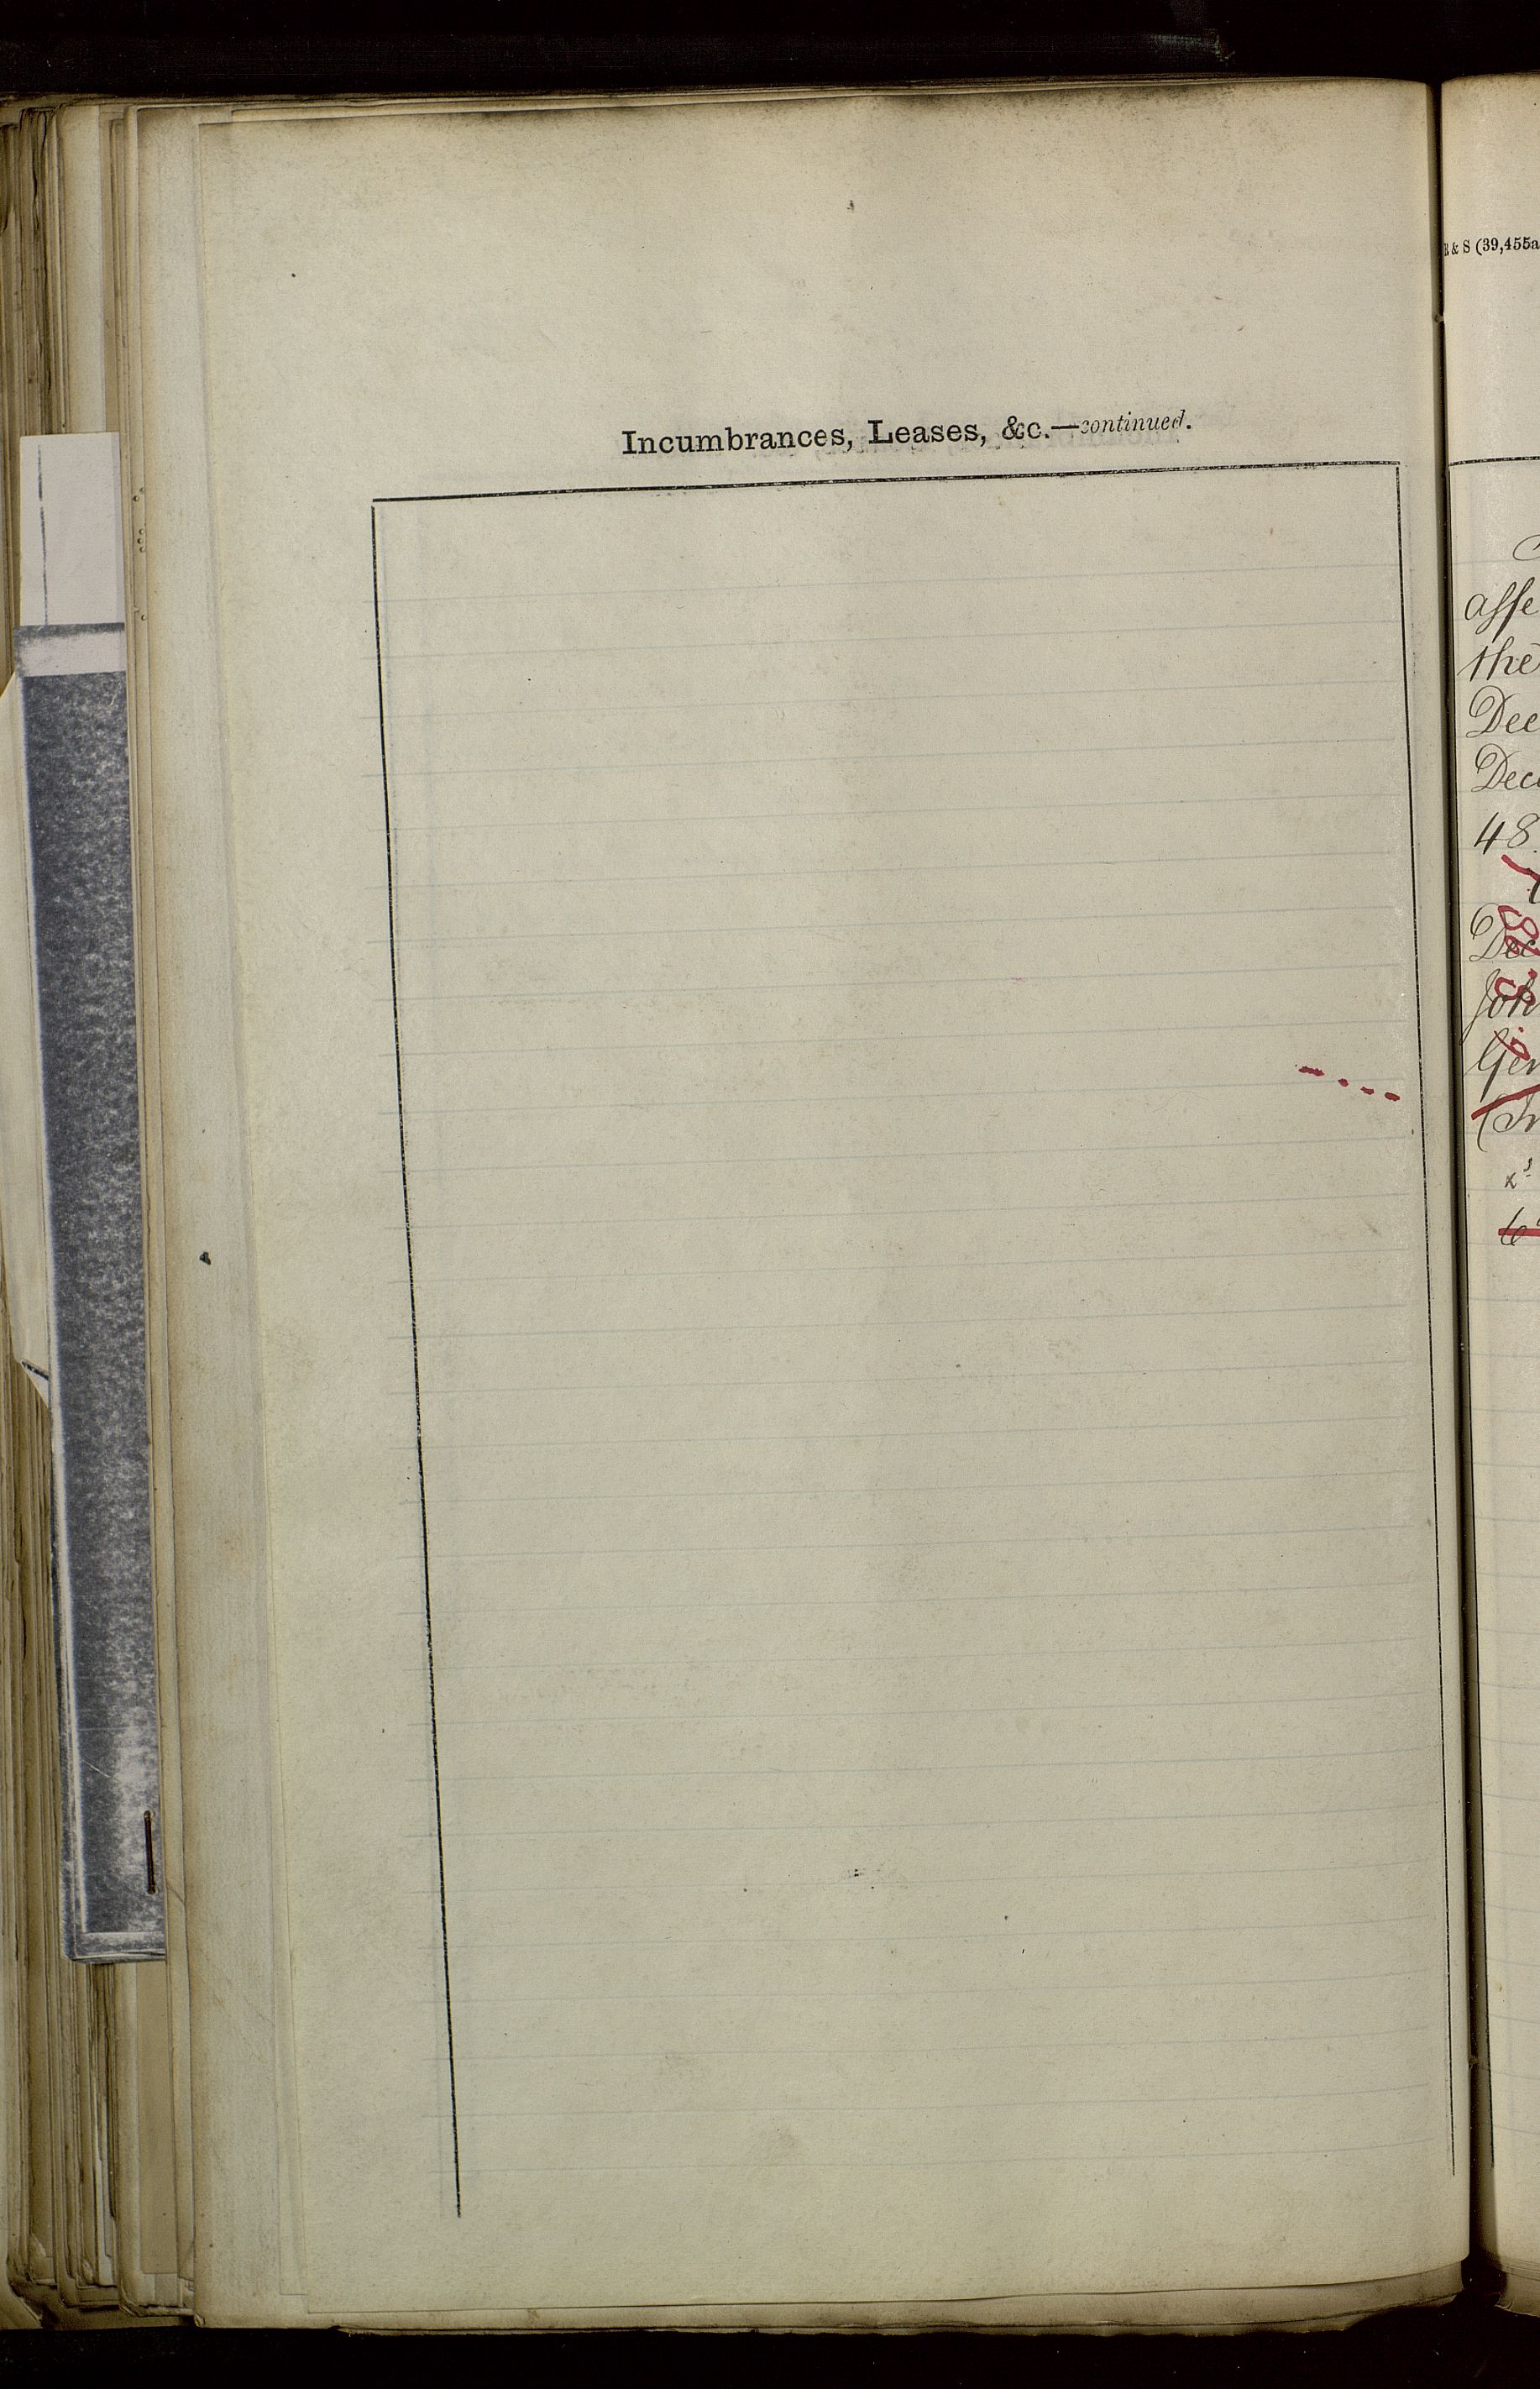 Incumbrances, Leases, &c.—continued.
E & S (39,455a
affe
the
Dee
Dece
48.
Dec
Joh
Ger